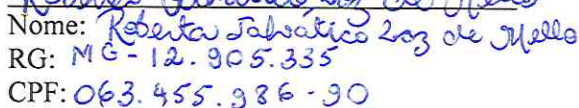 Nome: Roberta Salvático Vaz de Mello
RG: MG-12.905.335
CPF: 063.455.986-90